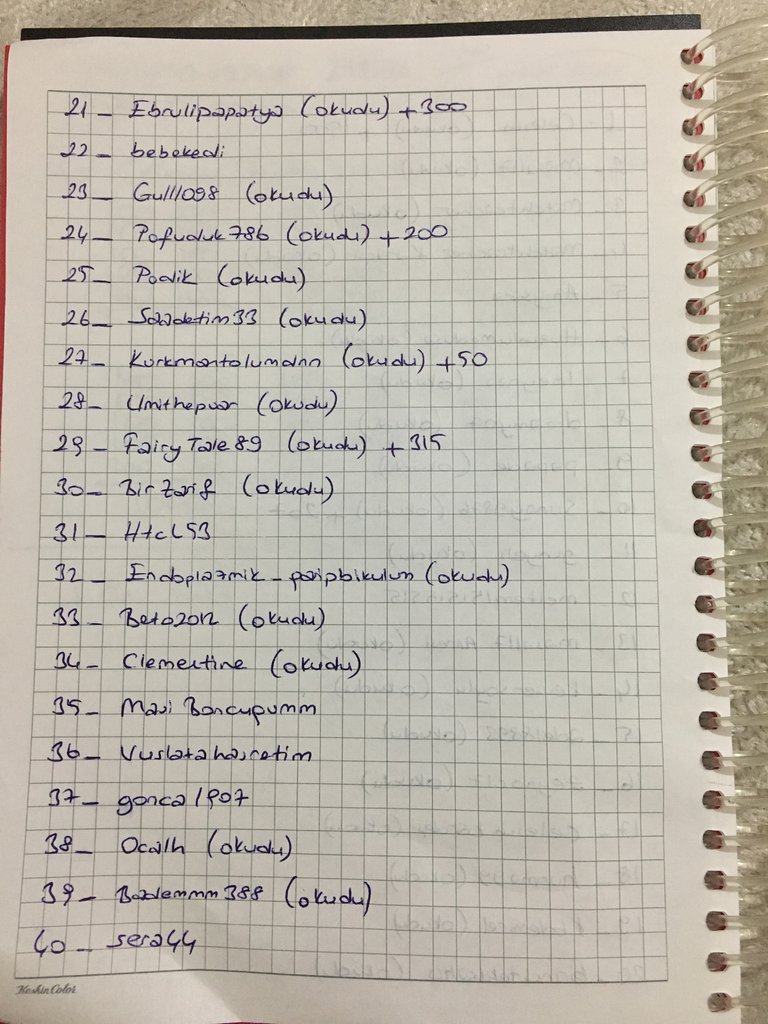 21 - Ebrulipapatya (okudu) +300
22 - bebekedi
23 - Gulll098 (okudu)
24 - Pofuduk786 (okudu) +200
25 - Podik (okudu)
26 - Saadetim33 (okudu)
27 - Kurkmantolumdnn (okudu) +50
28 - Umithepvar (okudu)
29 - Fairy Tale89 (okudu) +315
30 - Bir Zarif (okudu)
31 - HtcL53
32 - (okudu)
33 - Beto2012 (okudu)
34 - Clementine (okudu)
35 - Mavi Boncupumm
36 - Vuslatahasretim
37 - gonca1907
38 - Ocalh (okudu)
39 - Bademmm388 (okudu)
40 - sera44
Keskin Color